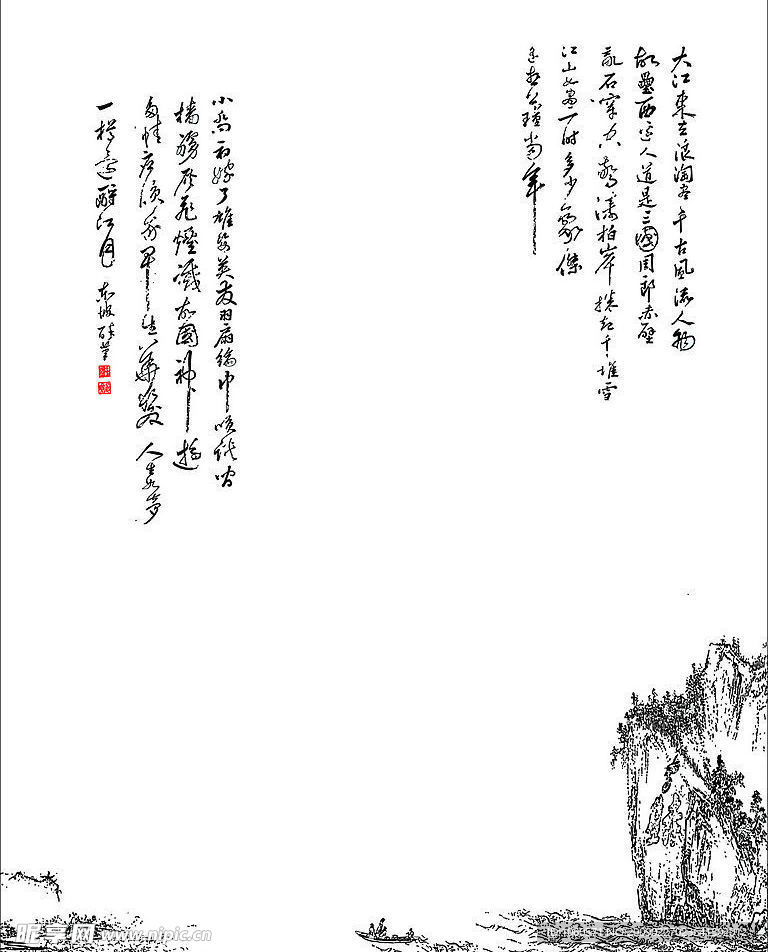 大江東去浪淘盡千古風流人物
故壘西邊人道是三國周郎赤壁
亂石穿空驚濤拍岸捲起千堆雪
江山如畫一時多少豪傑
遥想公瑾當年
小喬初嫁了雄姿英发羽扇綸巾談笑間
檣艣灰飛煙滅故國神遊
多情應笑我早生華髮人如夢
一樽還酹江月
東坡醉筆
昵享网 www.nipic.cn